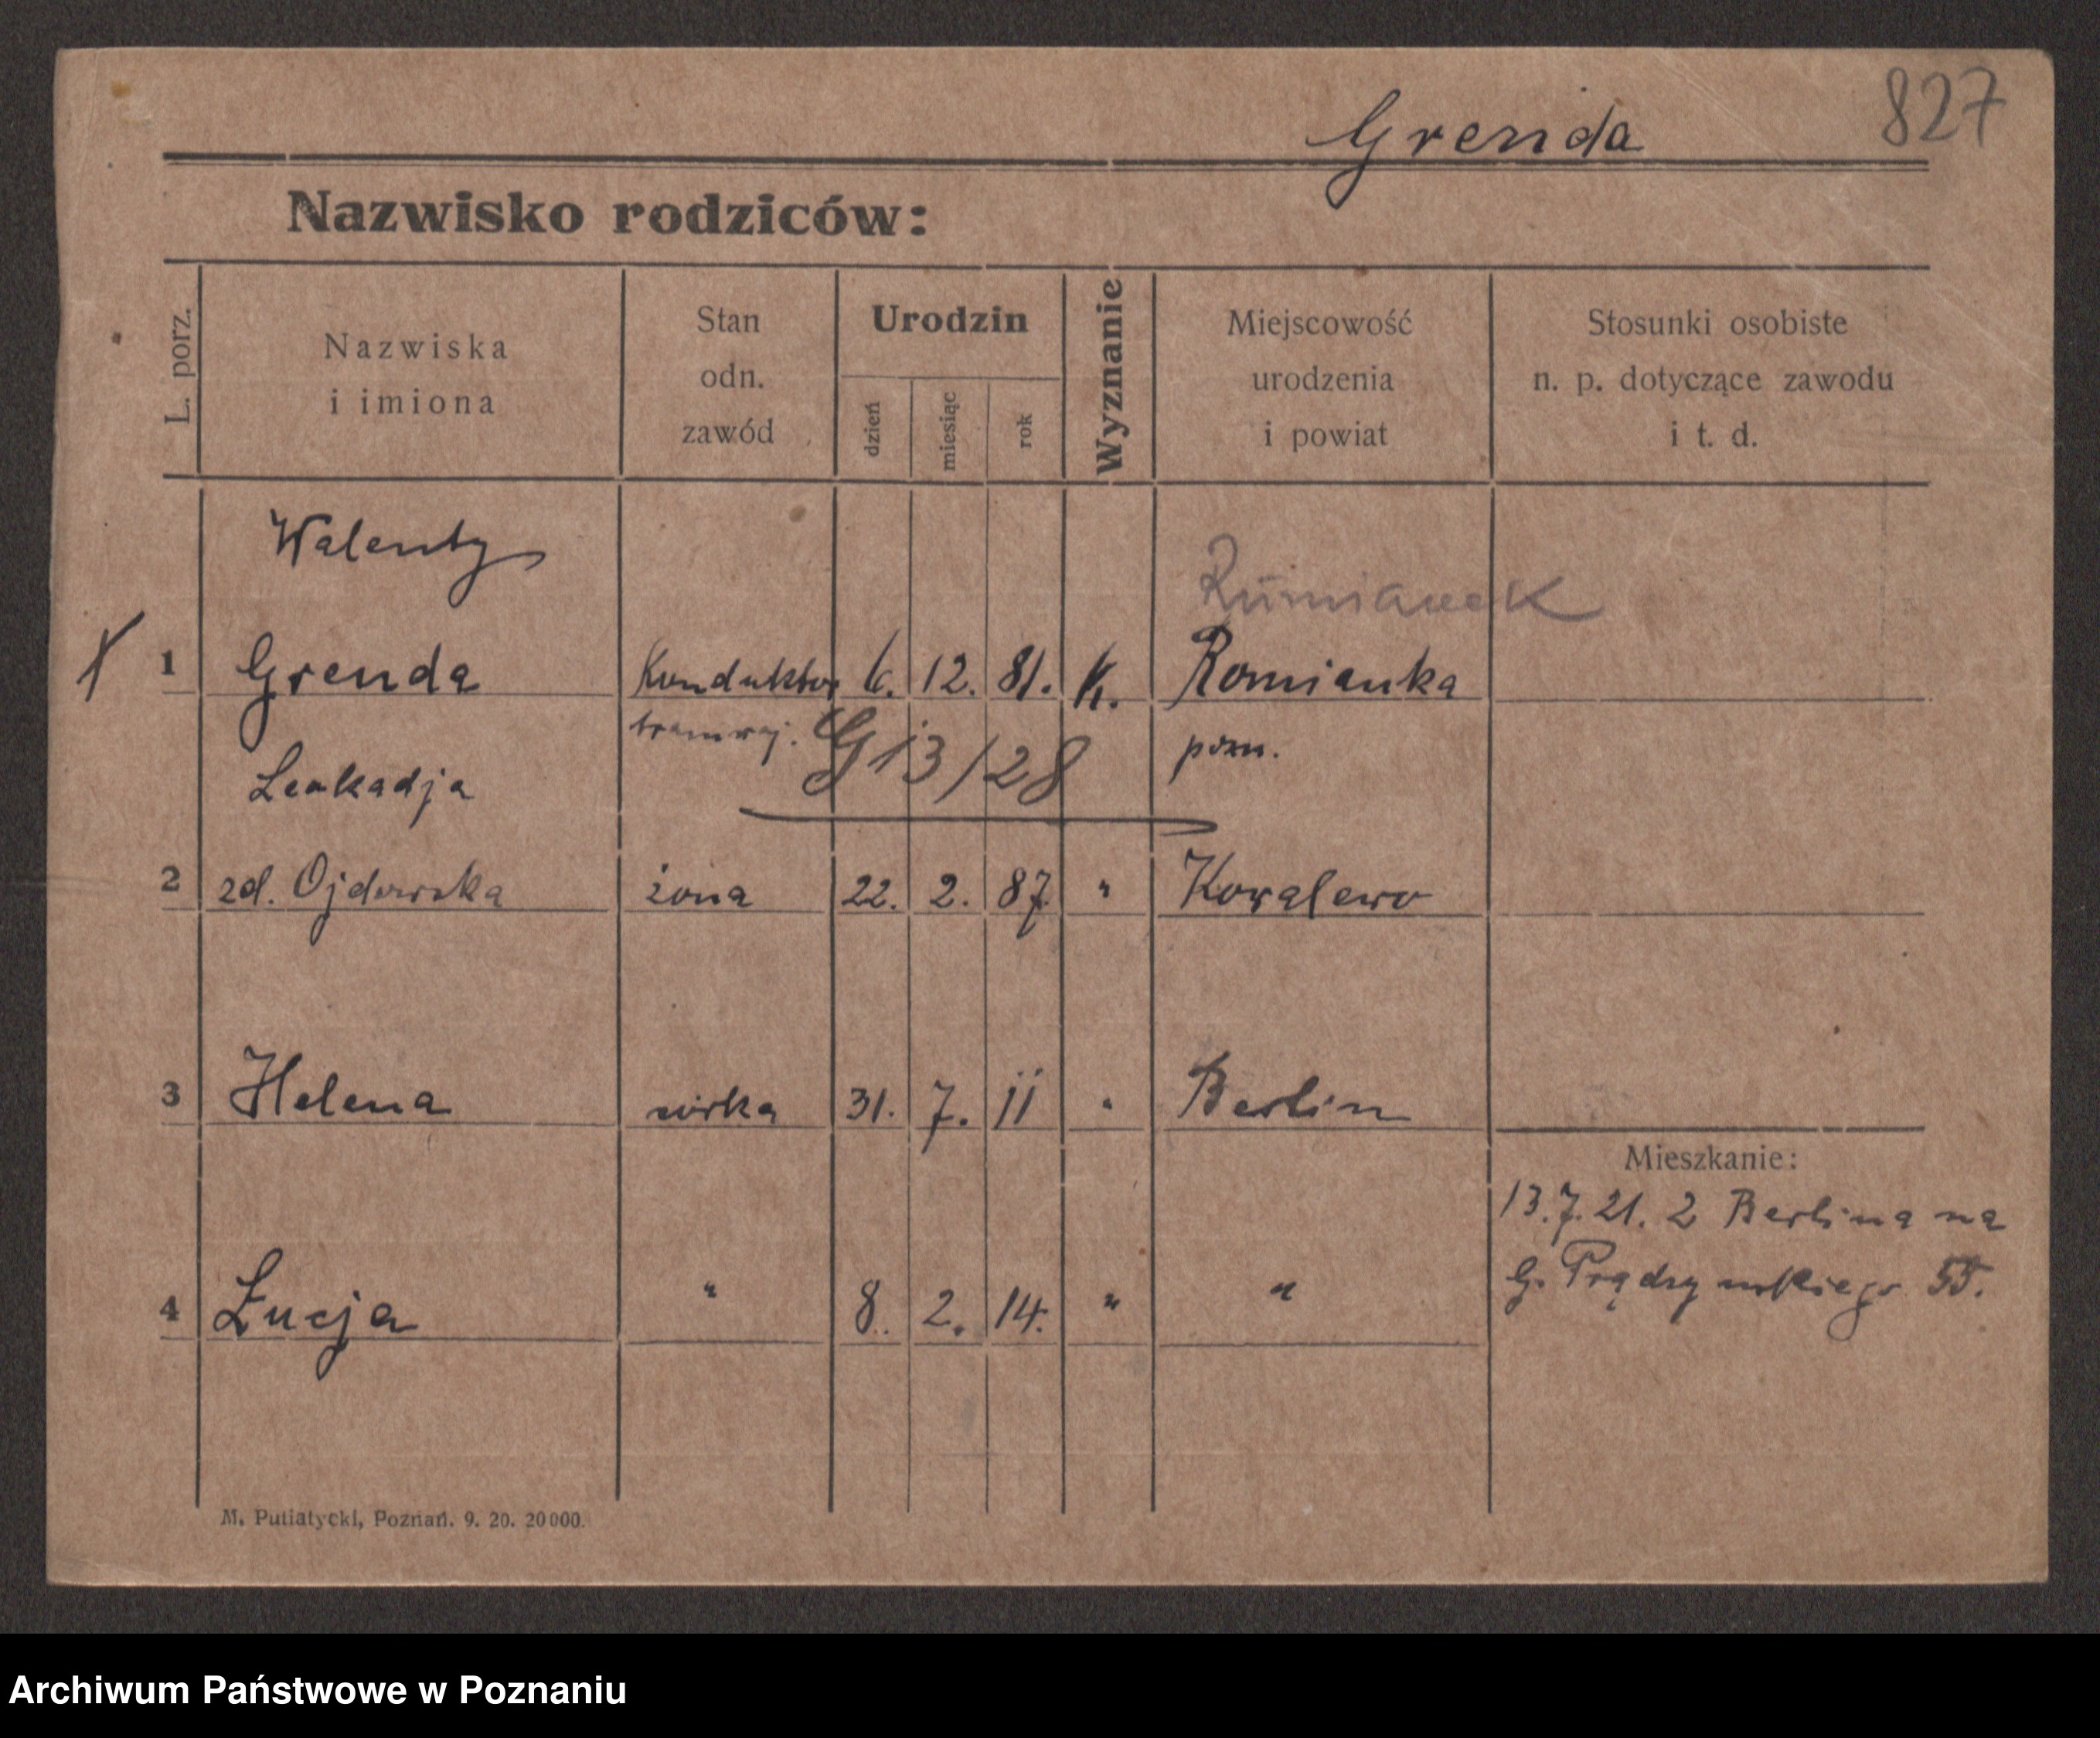 827
Grenda
Nazwisko rodziców:
L. porz.
Nazwiska
i imiona
Stan
odn.
zawód
Urodzin
dzień
miesiąc
rok
Wyznanie
Miejscowość
urodzenia
i powiat
Stosunki osobiste
n. p. dotyczące zawodu
i t. d.
Walenty
Rumianek
1 Grenda Konduktor 6. 12. 81. k. Romianka
tramwaj. G 13/28 pozn.
Leokadja
2 zd. Ojdowska żona 22. 2. 87. " Kowalewo
3 Helena córka 31. 7. 11 " Berlin
Mieszkanie:
13.7.21. z Berlina na
G. Prądzyńskiego 55.
4 Łucja " 8. 2. 14. " "
M. Putiatycki, Poznań. 9. 20. 20000.
Archiwum Państwowe w Poznaniu